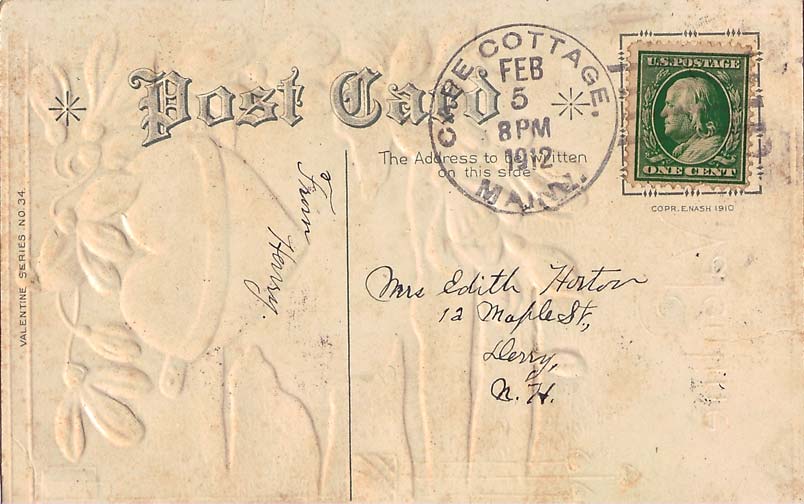 Post Card
CAPE COTTAGE,
FEB
5
8 PM
1912
MAINE.
U.S. POSTAGE
ONE CENT
COPR. E. NASH 1910
The Address to be written
on this side
VALENTINE SERIES NO. 34.
From
Harry.
Mrs Edith Horton
12 Maple St.,
Derry,
N. H.